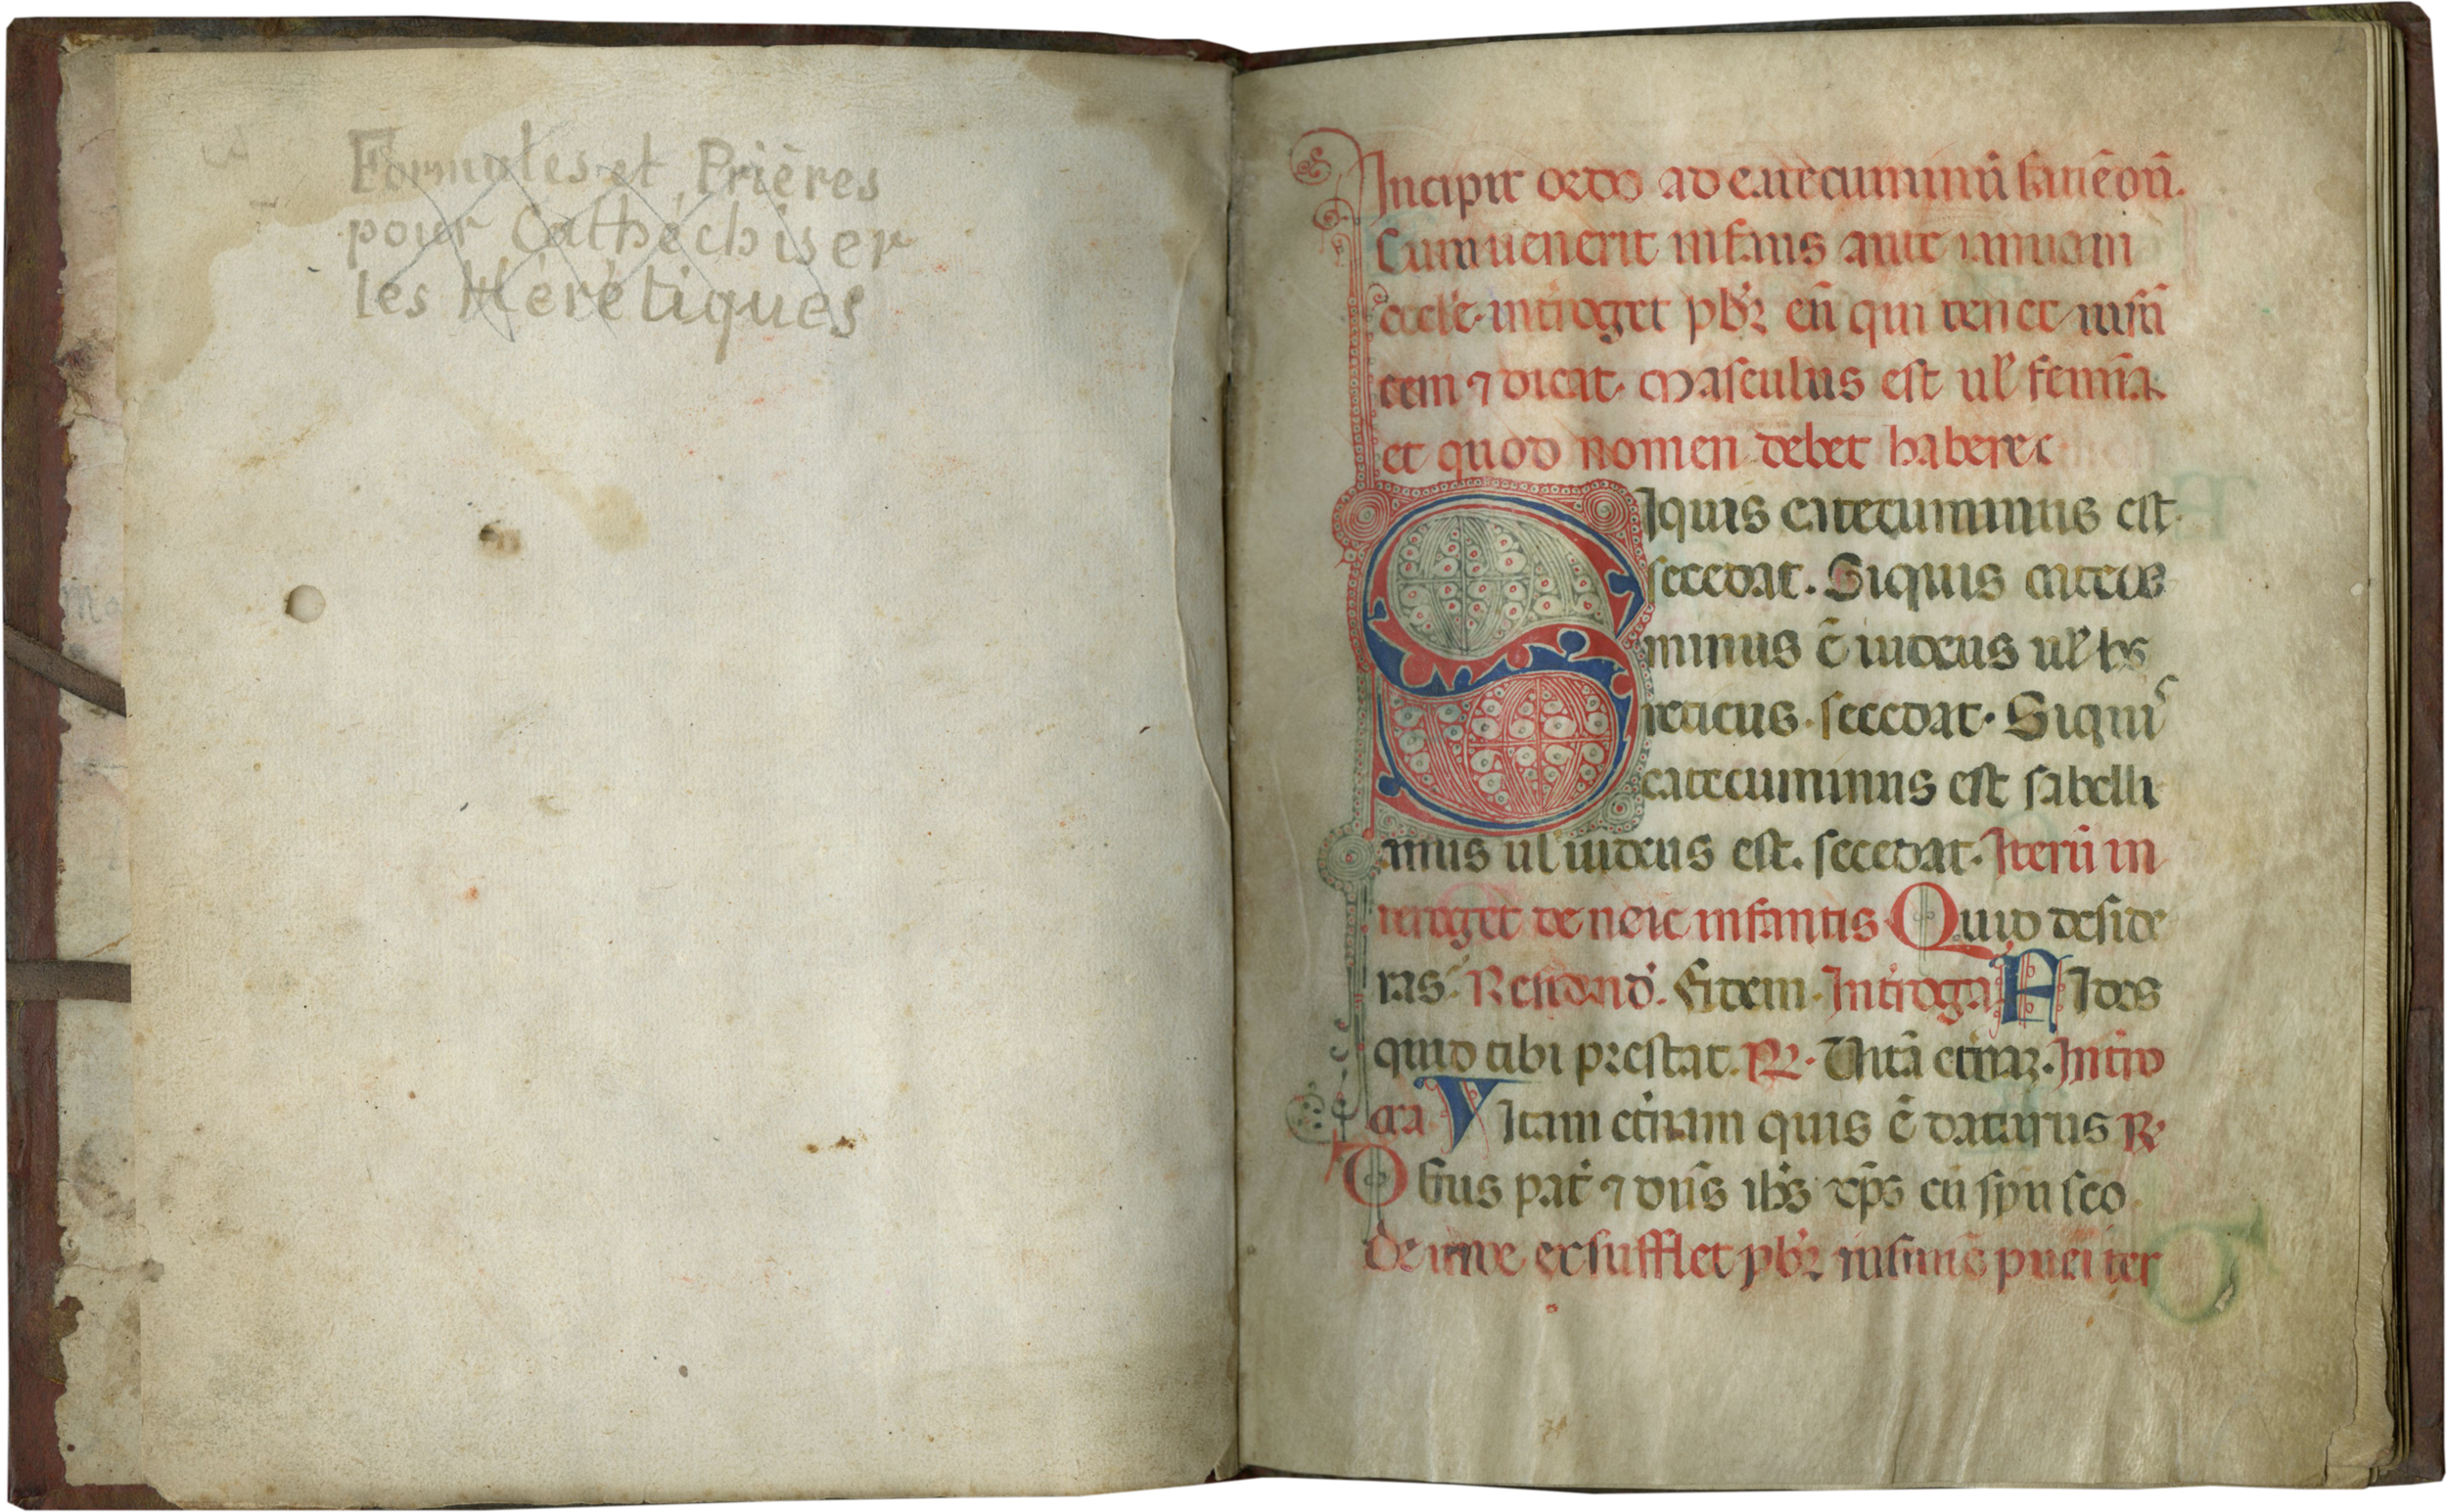 Formules et Prières
pour Cathéchiser
les Hérétiques
Incipit ordo ad catecuminũ faciẽdũ.
Cum uenerit infans ante ianuam
eccl'e. int'roget pb'r eũ qui tenet
tem ⁊ dicat. Masculus est ul' femĩa.
et quod nomen debet habere
SIquis catecuminus est
secedat. Siquis catecu
minus ẽ iudeus ul' he
reticus. secedat. Siquis
catecuminus est sabelli
anus ul' iudeus est. secedat. Iterũ in
teroget de noĩe infantis Quid deside
ras. Respond'. Fidem. Int'roga FIdes
quid tibi prestat. R. Vitã et'nã. Int'ro
ga VItam et'nam quis ẽ daturus R.
Deus pat' ⁊ dñs ihs xps cũ spũ sco
Deinde exsufflet pb'r pueri ter